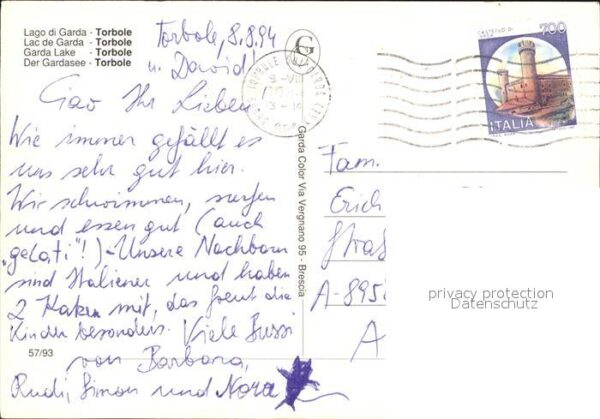 Lago di Garda - Torbole
Lac de Garda - Torbole
Garda Lake - Torbole
Der Gardasee - Torbole
Torbole, 8.8.94
u. David!
Ciao Ihr Lieben!
Wie immer gefällt es
uns sehr gut hier.
Wir schwimmen, surfen
und essen gut (auch
"gelati"!) - Unsere Nachbarn
sind Italiener und haben
2 Katzen mit, das freut die
Kinder besonders. Viele Bussi
von Barbara,
Rudi, Simon und Nora
57/93
G
Garda Color Via Vergnano 95 - Brescia
700
ITALIA
Fam.
Erich
Straß
A-895
A
privacy protection
Datenschutz